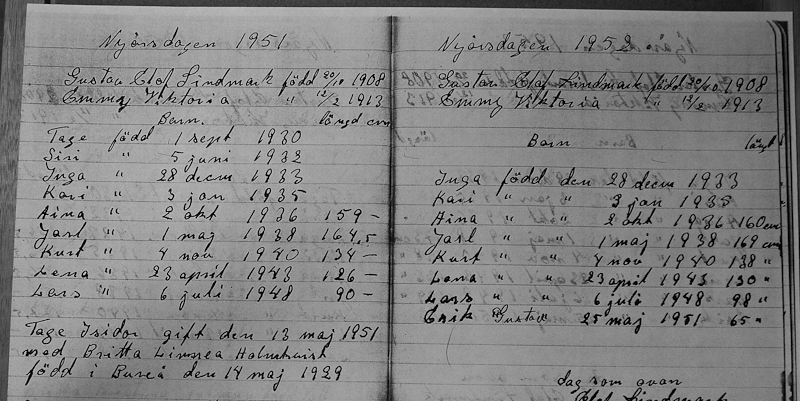 Nyårsdagen 1951
Gustav Olof Lindmark född 20/10 1908
Emmy Viktoria " 12/2 1913
Barn. längd cm
Tage född 1 sept 1930
Siri " 5 juni 1932
Inga " 28 decm 1933
Kari " 3 jan 1935
Aina " 2 okt 1936 159 –
Jarl " 1 maj 1938 164,5
Kurt " 4 nov 1940 134 –
Lena " 23 april 1943 126 –
Lars " 6 juli 1948 90 –
Tage Isidor gift den 13 maj 1951
med Britta Linnea Holmkvist
född i Bureå den 14 maj 1929
Nyårsdagen 1952
Gustav Olof Lindmark född 20/10 1908
Emmy Viktoria " 12/2 1913
Barn längd
Inga född den 28 decm 1933
Kari " " 3 jan 1935
Aina " " 2 okt 1936 160 cm
Jarl " " 1 maj 1938 169 cm
Kurt " " 4 nov 1940 138 "
Lena " " 23 april 1943 130 "
Lars " " 6 juli 1948 98 "
Erik Gustav " 25 maj 1951 65 "
dag som ovan
Olof Lindmark